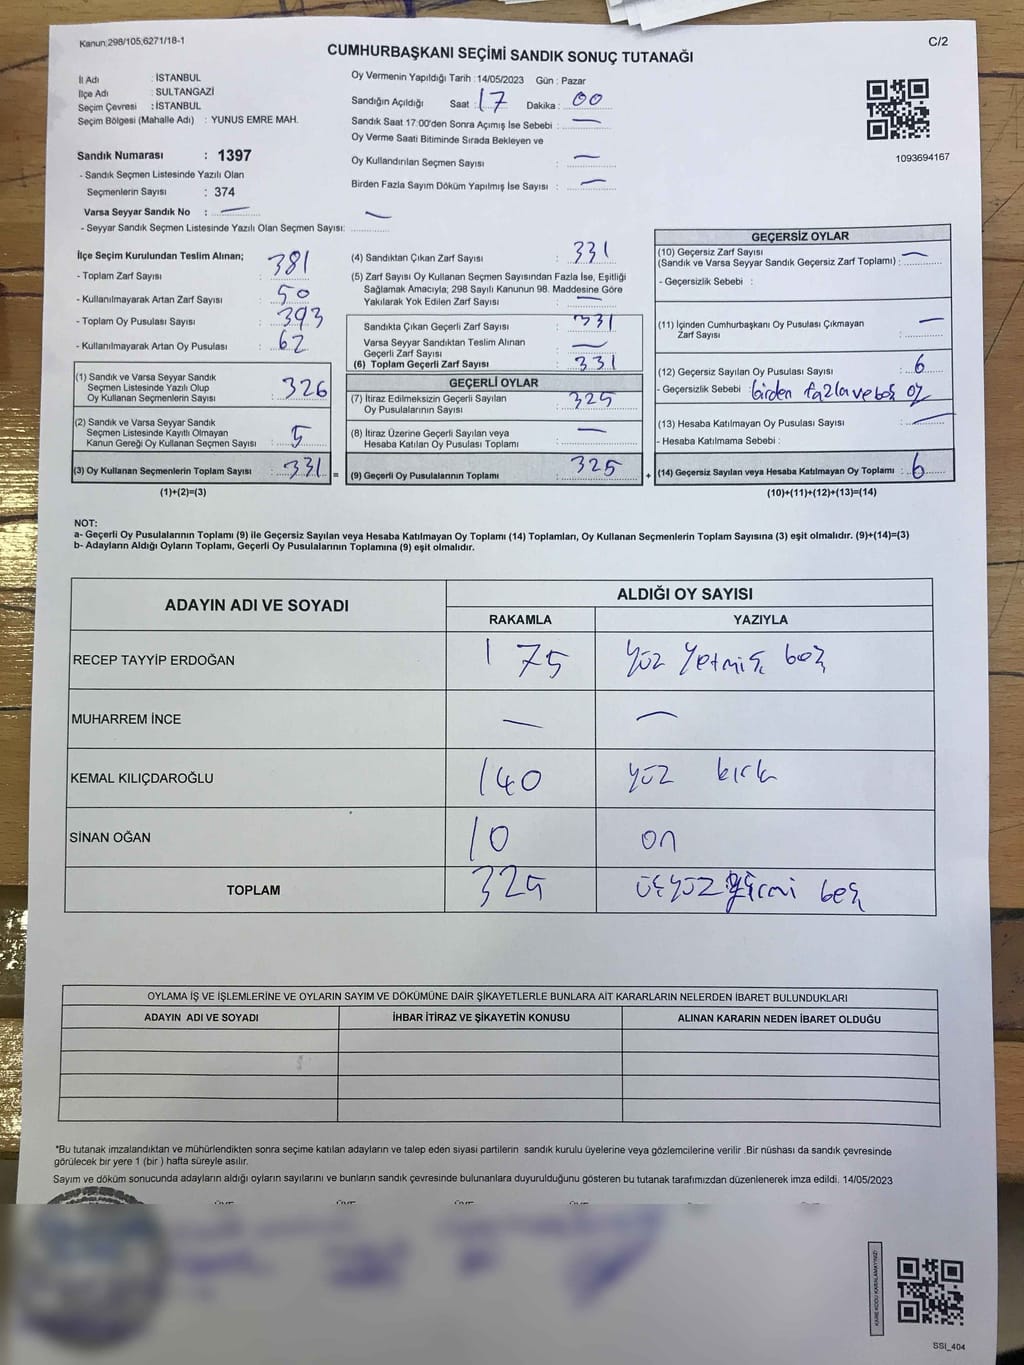 Kanun:298/105,6271/18-1
C/2
CUMHURBAŞKANI SEÇİMİ SANDIK SONUÇ TUTANAĞI
İl Adı : İSTANBUL
İlçe Adı : SULTANGAZİ
Seçim Çevresi : İSTANBUL
Seçim Bölgesi (Mahalle Adı) : YUNUS EMRE MAH.
Sandık Numarası : 1397
- Sandık Seçmen Listesinde Yazılı Olan
Seçmenlerin Sayısı : 374
Varsa Seyyar Sandık No : —
- Seyyar Sandık Seçmen Listesinde Yazılı Olan Seçmen Sayısı: —
Oy Vermenin Yapıldığı Tarih : 14/05/2023 Gün : Pazar
Sandığın Açıldığı Saat : 17 Dakika : 00
Sandık Saat 17:00'den Sonra Açımış İse Sebebi : —
Oy Verme Saati Bitiminde Sırada Bekleyen ve
Oy Kullandırılan Seçmen Sayısı : —
Birden Fazla Sayım Döküm Yapılmış İse Sayısı : —
1093694167
İlçe Seçim Kurulundan Teslim Alınan;
- Toplam Zarf Sayısı : 381
- Kullanılmayarak Artan Zarf Sayısı : 50
- Toplam Oy Pusulası Sayısı : 393
- Kullanılmayarak Artan Oy Pusulası : 62
(1) Sandık ve Varsa Seyyar Sandık
Seçmen Listesinde Yazılı Olup
Oy Kullanan Seçmenlerin Sayısı : 326
(2) Sandık ve Varsa Seyyar Sandık
Seçmen Listesinde Kayıtlı Olmayan
Kanun Gereği Oy Kullanan Seçmen Sayısı : 5
(3) Oy Kullanan Seçmenlerin Toplam Sayısı : 331 =
(1)+(2)=(3)
(4) Sandıktan Çıkan Zarf Sayısı : 331
(5) Zarf Sayısı Oy Kullanan Seçmen Sayısından Fazla İse, Eşitliği
Sağlamak Amacıyla; 298 Sayılı Kanunun 98. Maddesine Göre
Yakılarak Yok Edilen Zarf Sayısı : —
Sandıkta Çıkan Geçerli Zarf Sayısı : 331
Varsa Seyyar Sandıktan Teslim Alınan
Geçerli Zarf Sayısı : —
(6) Toplam Geçerli Zarf Sayısı : 331
GEÇERLİ OYLAR
(7) İtiraz Edilmeksizin Geçerli Sayılan
Oy Pusulalarının Sayısı : 325
(8) İtiraz Üzerine Geçerli Sayılan veya
Hesaba Katılan Oy Pusulası Toplamı : —
(9) Geçerli Oy Pusulalarının Toplamı : 325 +
GEÇERSİZ OYLAR
(10) Geçersiz Zarf Sayısı
(Sandık ve Varsa Seyyar Sandık Geçersiz Zarf Toplamı) : —
- Geçersizlik Sebebi :
(11) İçinden Cumhurbaşkanı Oy Pusulası Çıkmayan
Zarf Sayısı : —
(12) Geçersiz Sayılan Oy Pusulası Sayısı : 6
- Geçersizlik Sebebi : birden fazla ve boş oy
(13) Hesaba Katılmayan Oy Pusulası Sayısı : —
- Hesaba Katılmama Sebebi :
(14) Geçersiz Sayılan veya Hesaba Katılmayan Oy Toplamı : 6
(10)+(11)+(12)+(13)=(14)
NOT:
a- Geçerli Oy Pusulalarının Toplamı (9) ile Geçersiz Sayılan veya Hesaba Katılmayan Oy Toplamı (14) Toplamları, Oy Kullanan Seçmenlerin Toplam Sayısına (3) eşit olmalıdır. (9)+(14)=(3)
b- Adayların Aldığı Oyların Toplamı, Geçerli Oy Pusulalarının Toplamına (9) eşit olmalıdır.
ADAYIN ADI VE SOYADI
ALDIĞI OY SAYISI
RAKAMLA YAZIYLA
RECEP TAYYİP ERDOĞAN 175 yüz yetmiş beş
MUHARREM İNCE — —
KEMAL KILIÇDAROĞLU 140 yüz kırk
SİNAN OĞAN 10 on
TOPLAM 325 üçyüz yirmi beş
OYLAMA İŞ VE İŞLEMLERİNE VE OYLARIN SAYIM VE DÖKÜMÜNE DAİR ŞİKAYETLERLE BUNLARA AİT KARARLARIN NELERDEN İBARET BULUNDUKLARI
ADAYIN ADI VE SOYADI İHBAR İTİRAZ VE ŞİKAYETİN KONUSU ALINAN KARARIN NEDEN İBARET OLDUĞU
"Bu tutanak imzalandıktan ve mühürlendikten sonra seçime katılan adayların ve talep eden siyasi partilerin sandık kurulu üyelerine veya gözlemcilerine verilir .Bir nüshası da sandık çevresinde
görülecek bir yere 1 (bir ) hafta süreyle asılır.
Sayım ve döküm sonucunda adayların aldığı oyların sayılarını ve bunların sandık çevresinde bulunanlara duyurulduğunu gösteren bu tutanak tarafımızdan düzenlenerek imza edildi. 14/05/2023
KARE KODU KARALAMAYINIZ!
SSI_404